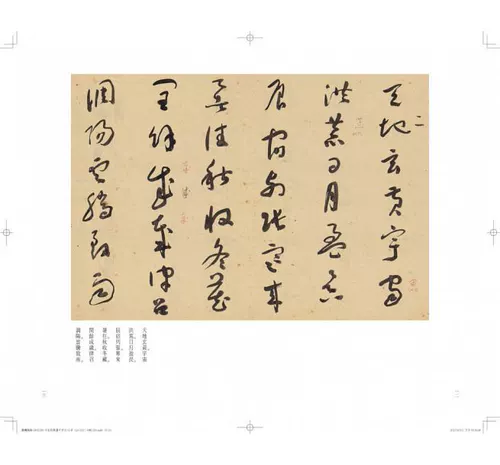 二
天地玄黄宇宙
洪荒日月盈昃
辰宿列張寒来
暑往秋收冬蔵
閏餘成歳律召
調陽雲騰致雨
天地玄黄、宇宙
洪荒。日月盈昃、
辰宿列張。寒来
暑往、秋収冬蔵。
閏餘成歳、律召
調陽。雲騰致雨、